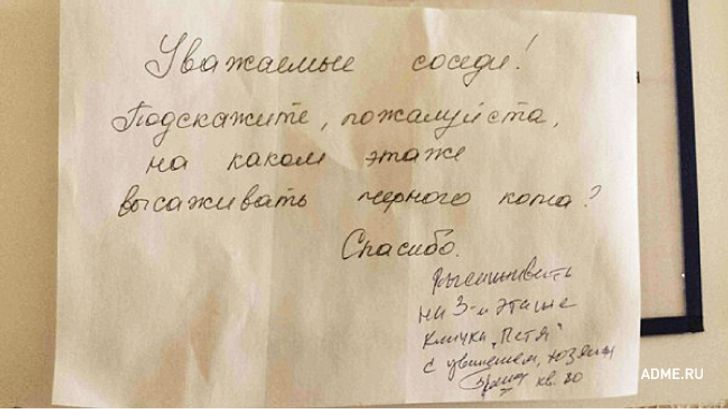 Уважаемые соседи!
Подскажите, пожалуйста,
на каком этаже
высаживать черного кота?
Спасибо.
Высаживать
на 3-м этаже
кличка "Петя"
с уважением, хозяин
кв. 80
ADME.RU